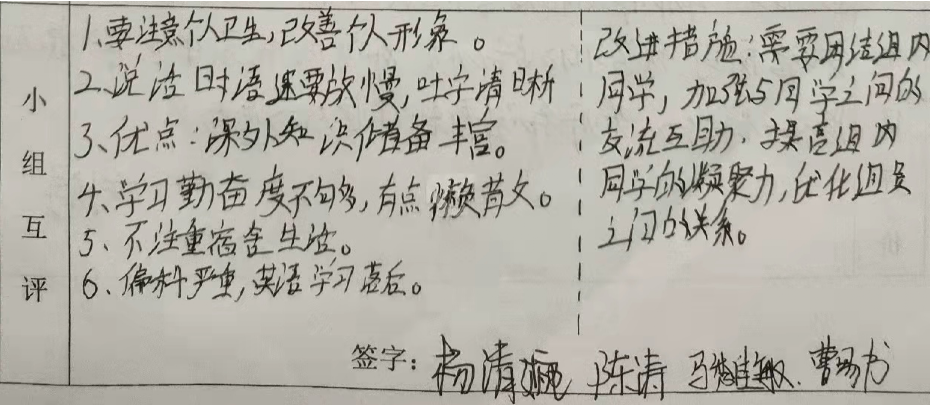 小组互评
1、要注意个人卫生,改善个人形象。
2、说话时语速要放慢,吐字清晰
3、优点:课外知识储备丰富。
4、学习勤奋度不够,有点懒散。
5、不注重宿舍生活。
6、偏科严重,英语学习落后。
改进措施:需要团结组内
同学,加强与同学之间的
交流互助.提高组内
同学的凝聚力,优化组员
之间的关系。
签字: 陈涛